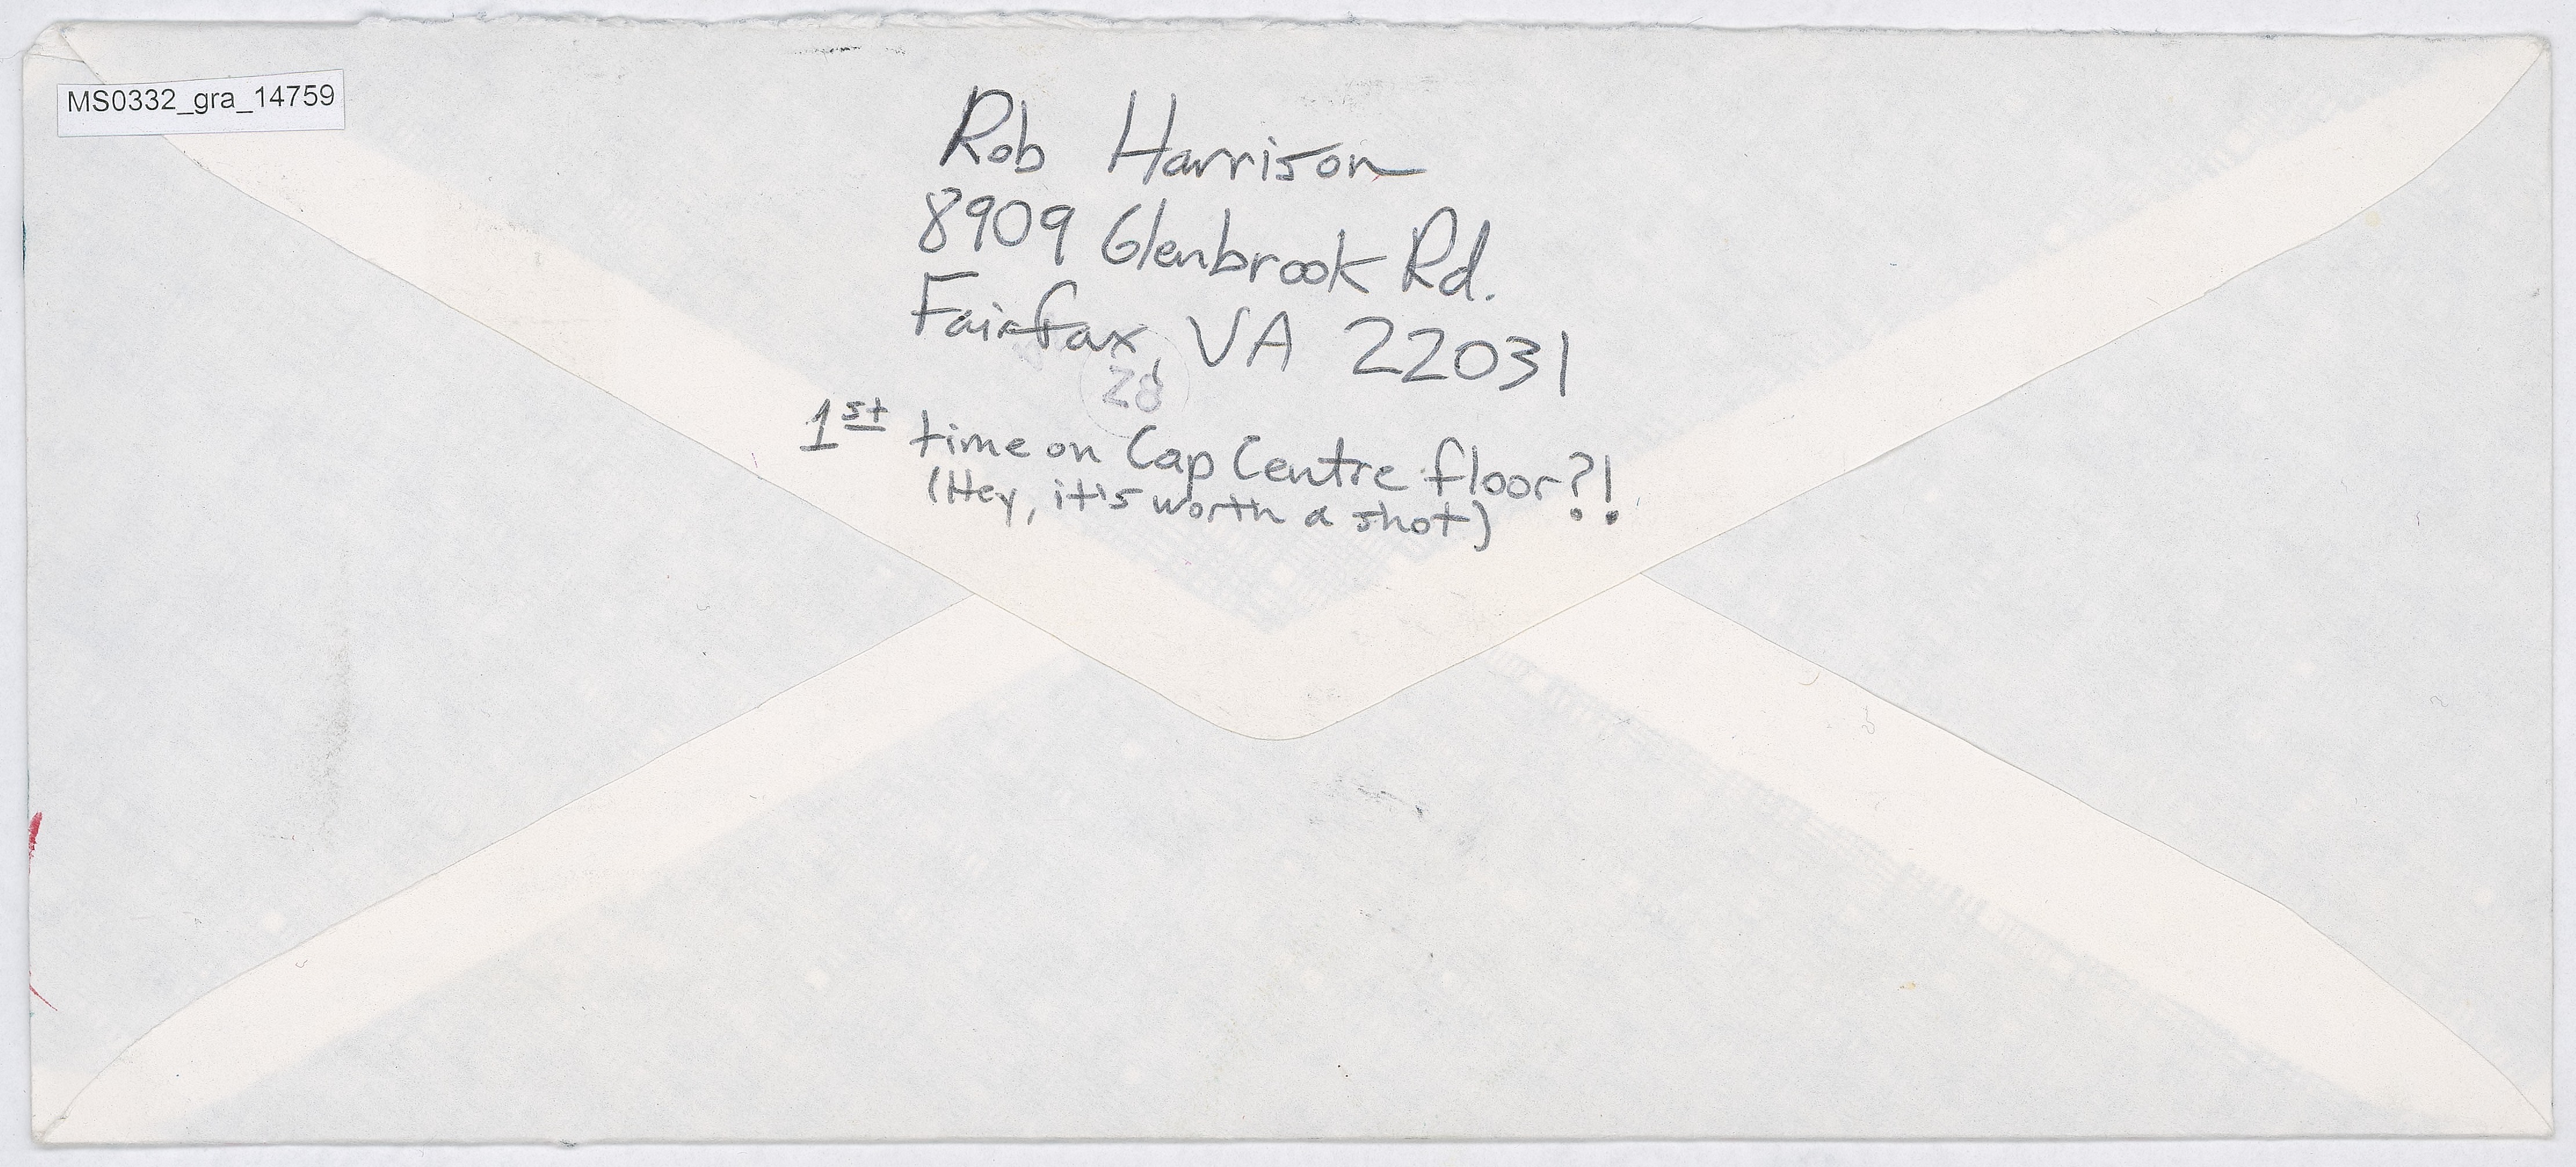 MS0332_gra_14759
Rob Harrison
8909 Glenbrook Rd.
Fairfax, VA 22031
28
1st time on Cap Centre floor?!
(Hey, it's worth a shot)